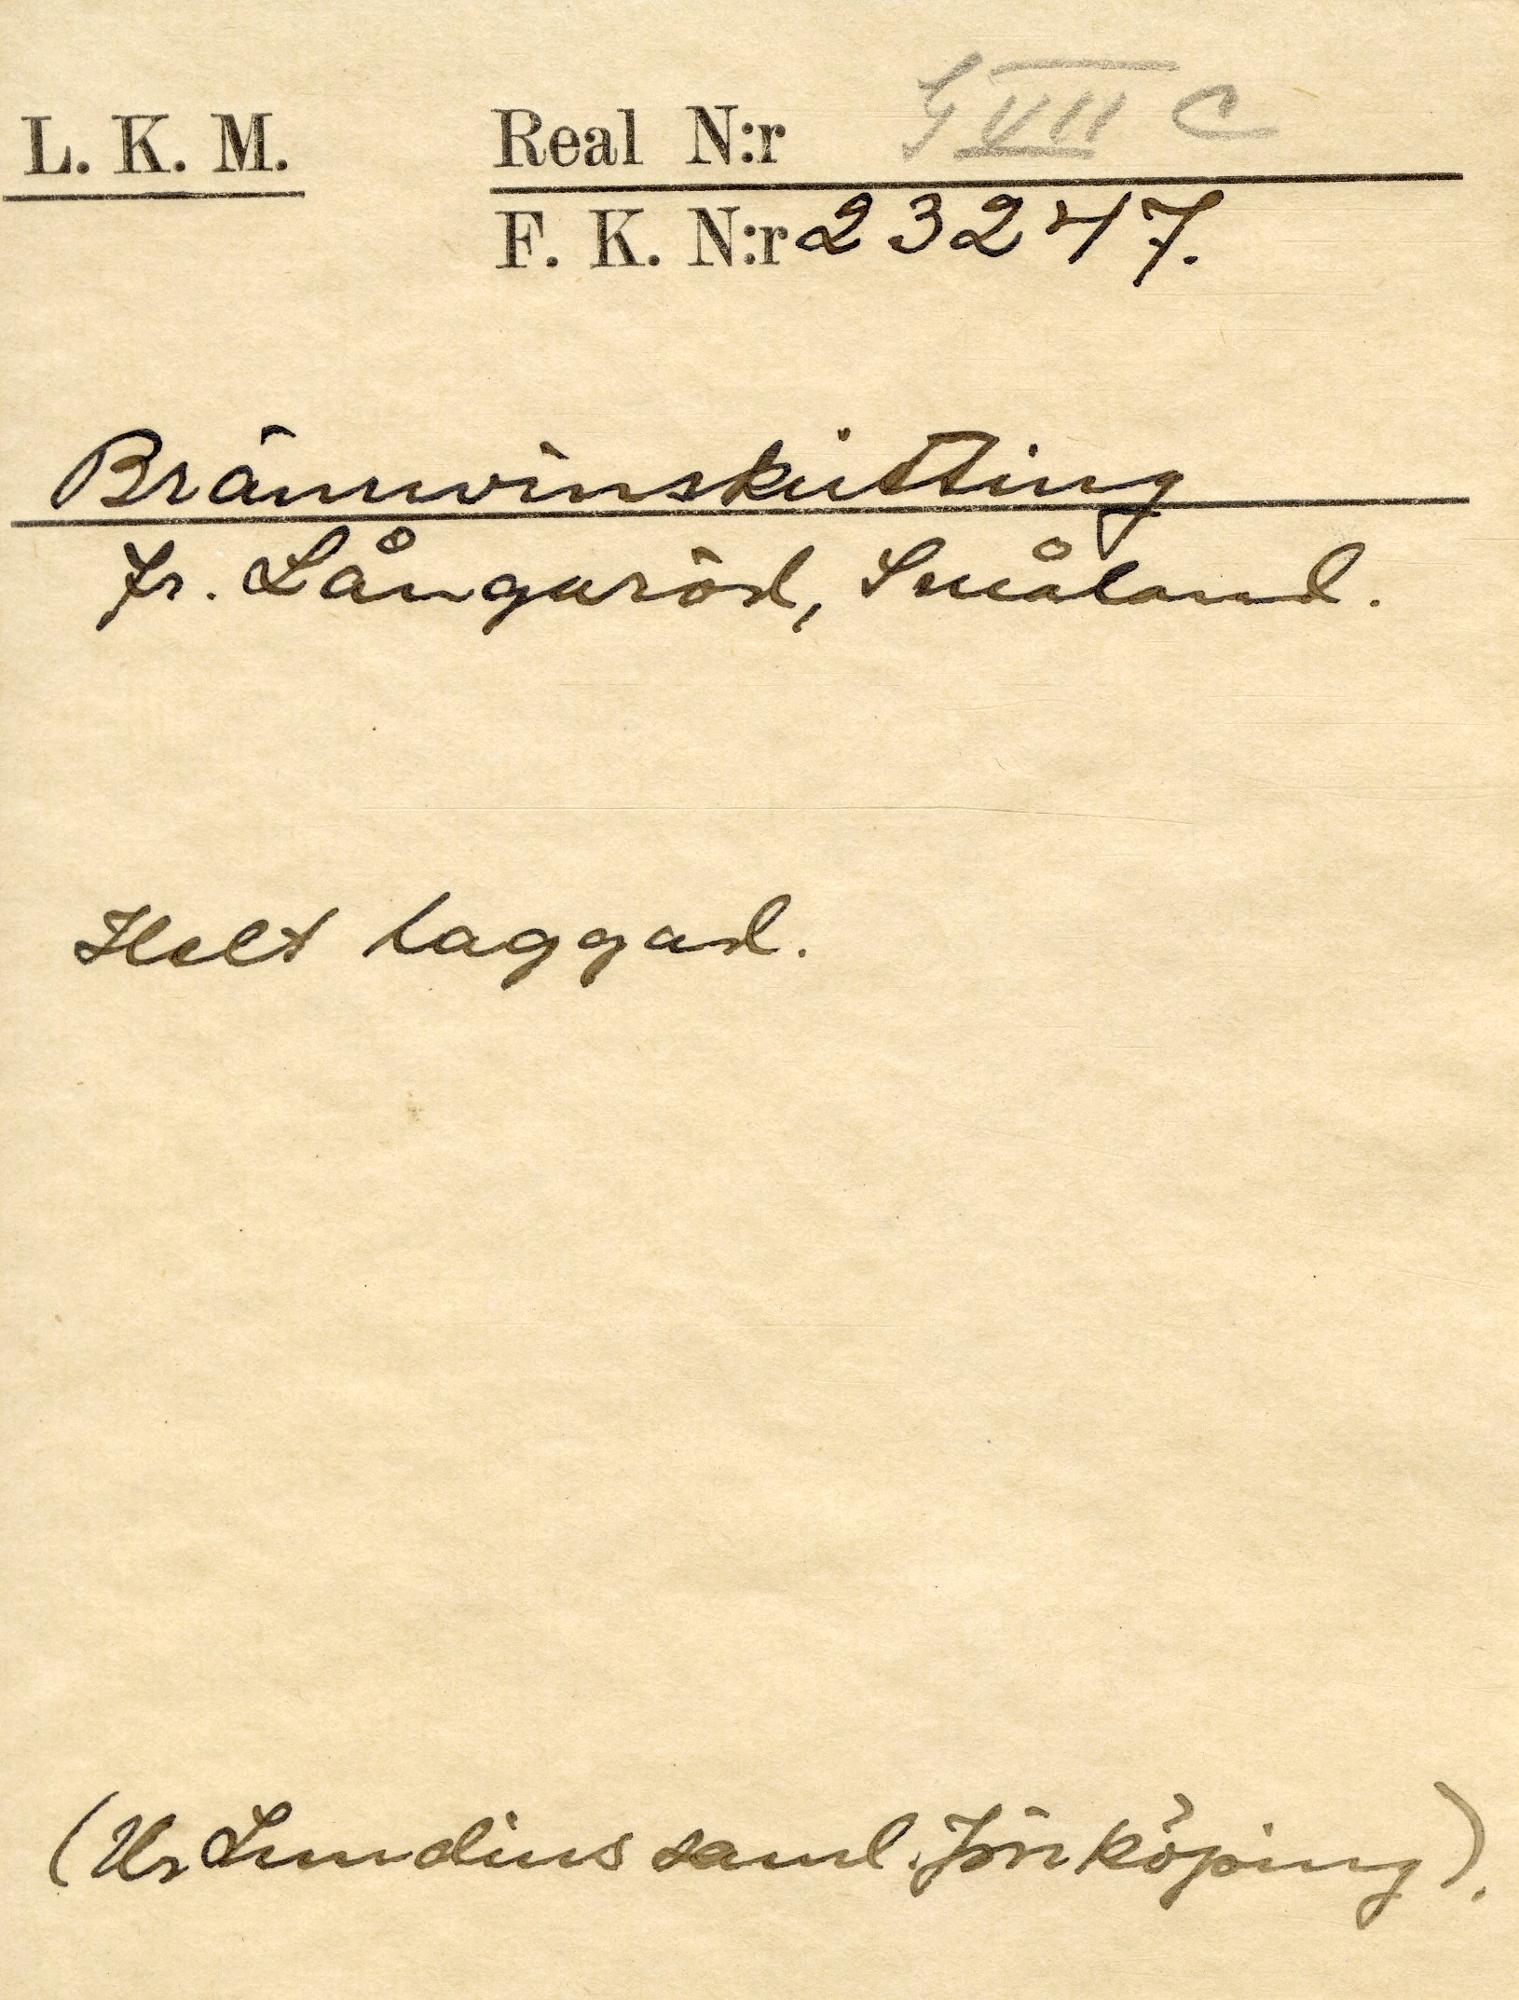 L. K. M. Real N:r G VII C
F. K. N:r 23247.
Brännvinskutting
fr. Långaröd, Småland.
Helt laggad.
(Ur Lundius saml. Jönköping).